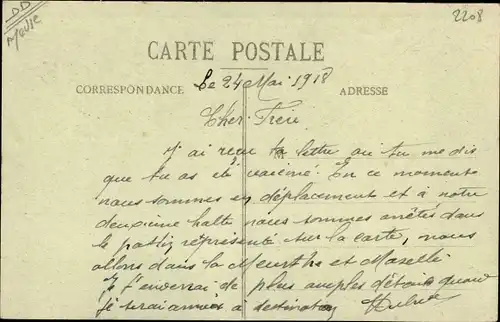 DD
Meuse
2208
CARTE POSTALE
Le 24 Mai 1918
CORRESPONDANCE
ADRESSE
Cher Frère
J'ai reçu ta lettre ou tu me dis
que tu as été vacciné. En ce moment
nous sommes en déplacement et à notre
deuxième halte nous sommes arrêtés dans
le représenté sur la carte, nous
allons dans la Meurthe et Moselle
Je t'enverrai de plus amples détails quand
je serai arrivé à destination